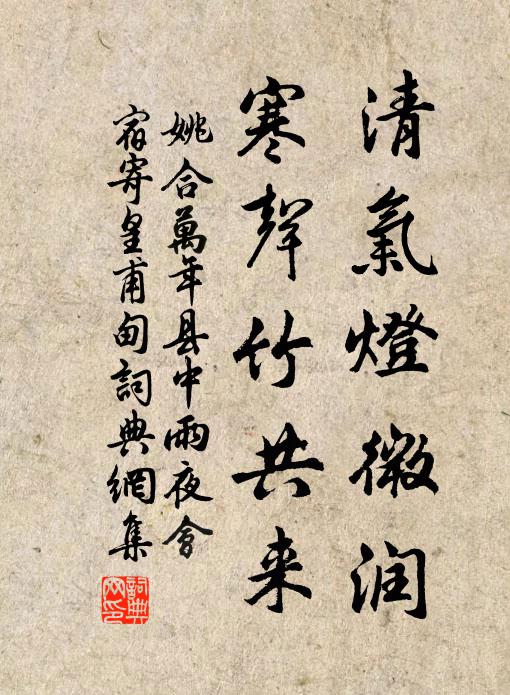 清氣燈微润
寒聲竹共来
姚合萬年县中雨夜會
宿寄皇甫甸詞典網集
詞典網印